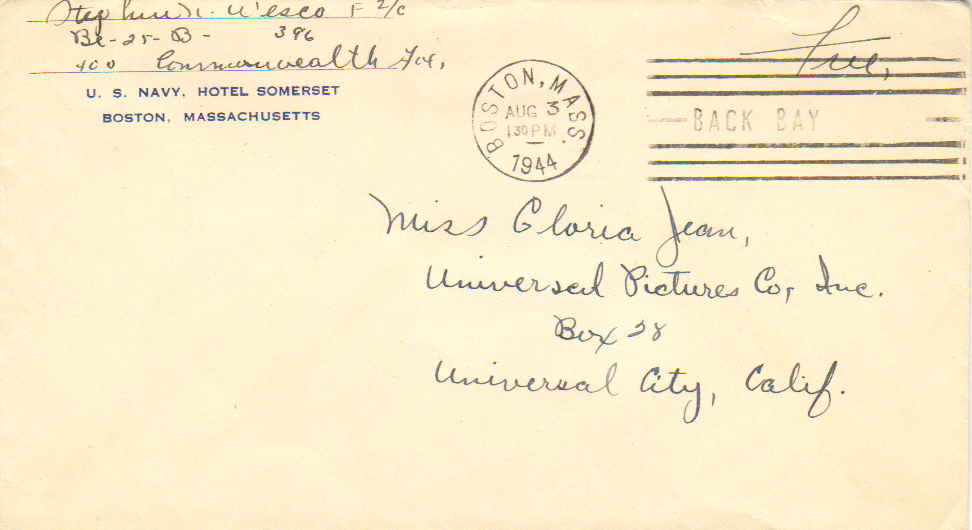 Stephen N. Wesco F 2/C
Be-25-B- 396
400 Commonwealth Ave,
U. S. NAVY, HOTEL SOMERSET
BOSTON, MASSACHUSETTS
BOSTON, MASS.
AUG 3
130 PM
1944
Free,
BACK BAY
Miss Gloria Jean,
Universal Pictures Co, Inc.
Box 28
Universal City, Calif.